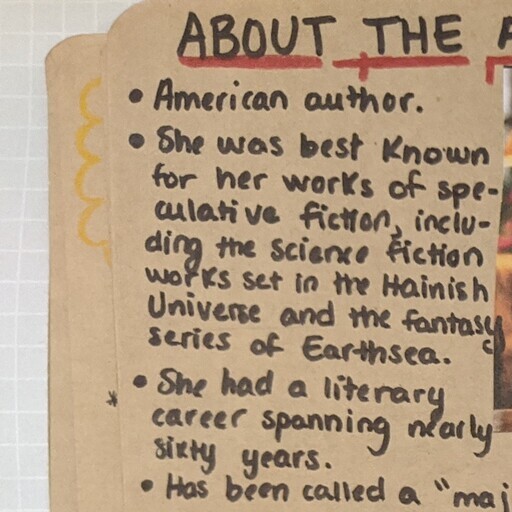 ABOUT THE A
• American author.
• She was best Known
for her works of spe-
culative fiction, inclu-
ding the science fiction
works set in the Hainish
Universe and the fantasy
series of Earthsea.
• She had a literary
* career spanning nearly
sixty years.
• Has been called a "maj